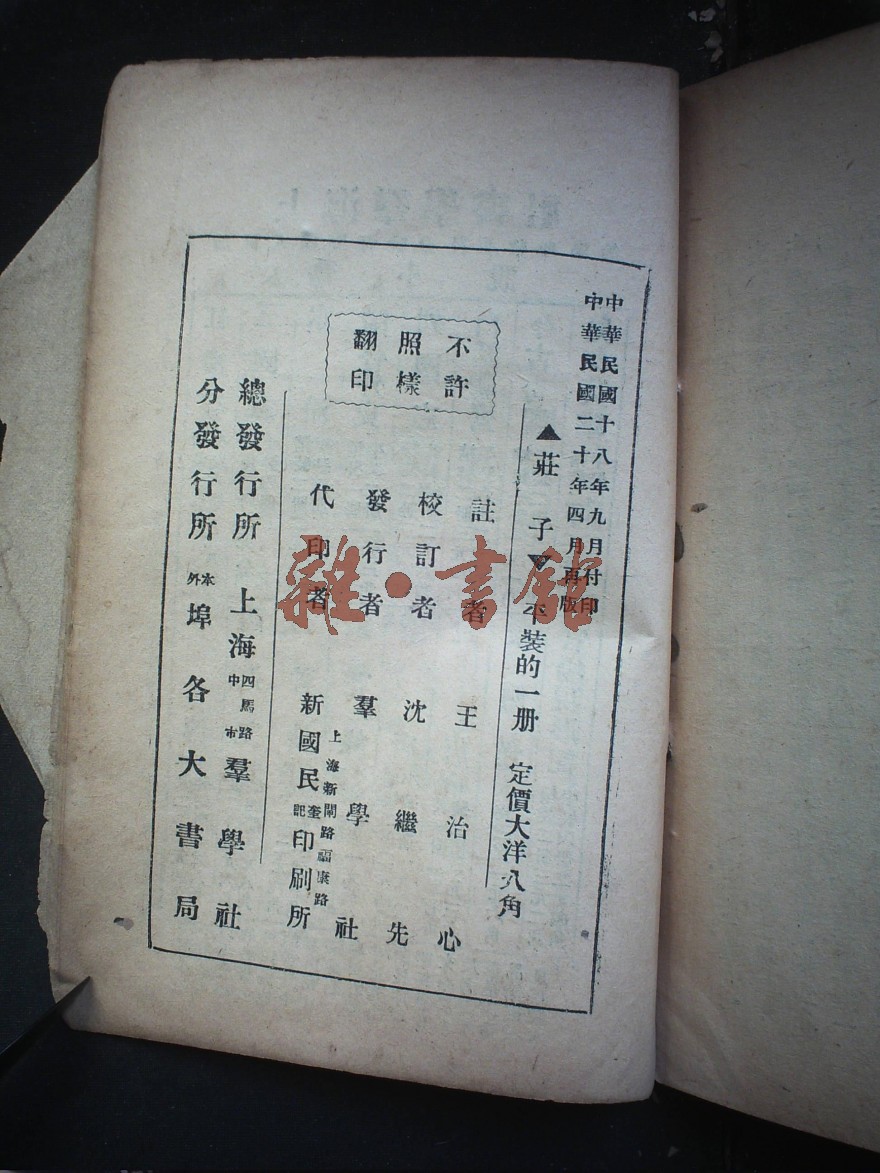 中華民國十八年九月付印
中華民國二十年四月再版
▲莊子▼ 平裝的一册 定價大洋八角
不許
照樣
翻印
註者 王治心
校訂者 沈繼先
發行者 羣學社
上海新閘路福康路
代印者 新國民奎記印刷所
總發行所 上海四馬路中市羣學社
分發行所 本外埠各大書局
雜·書館